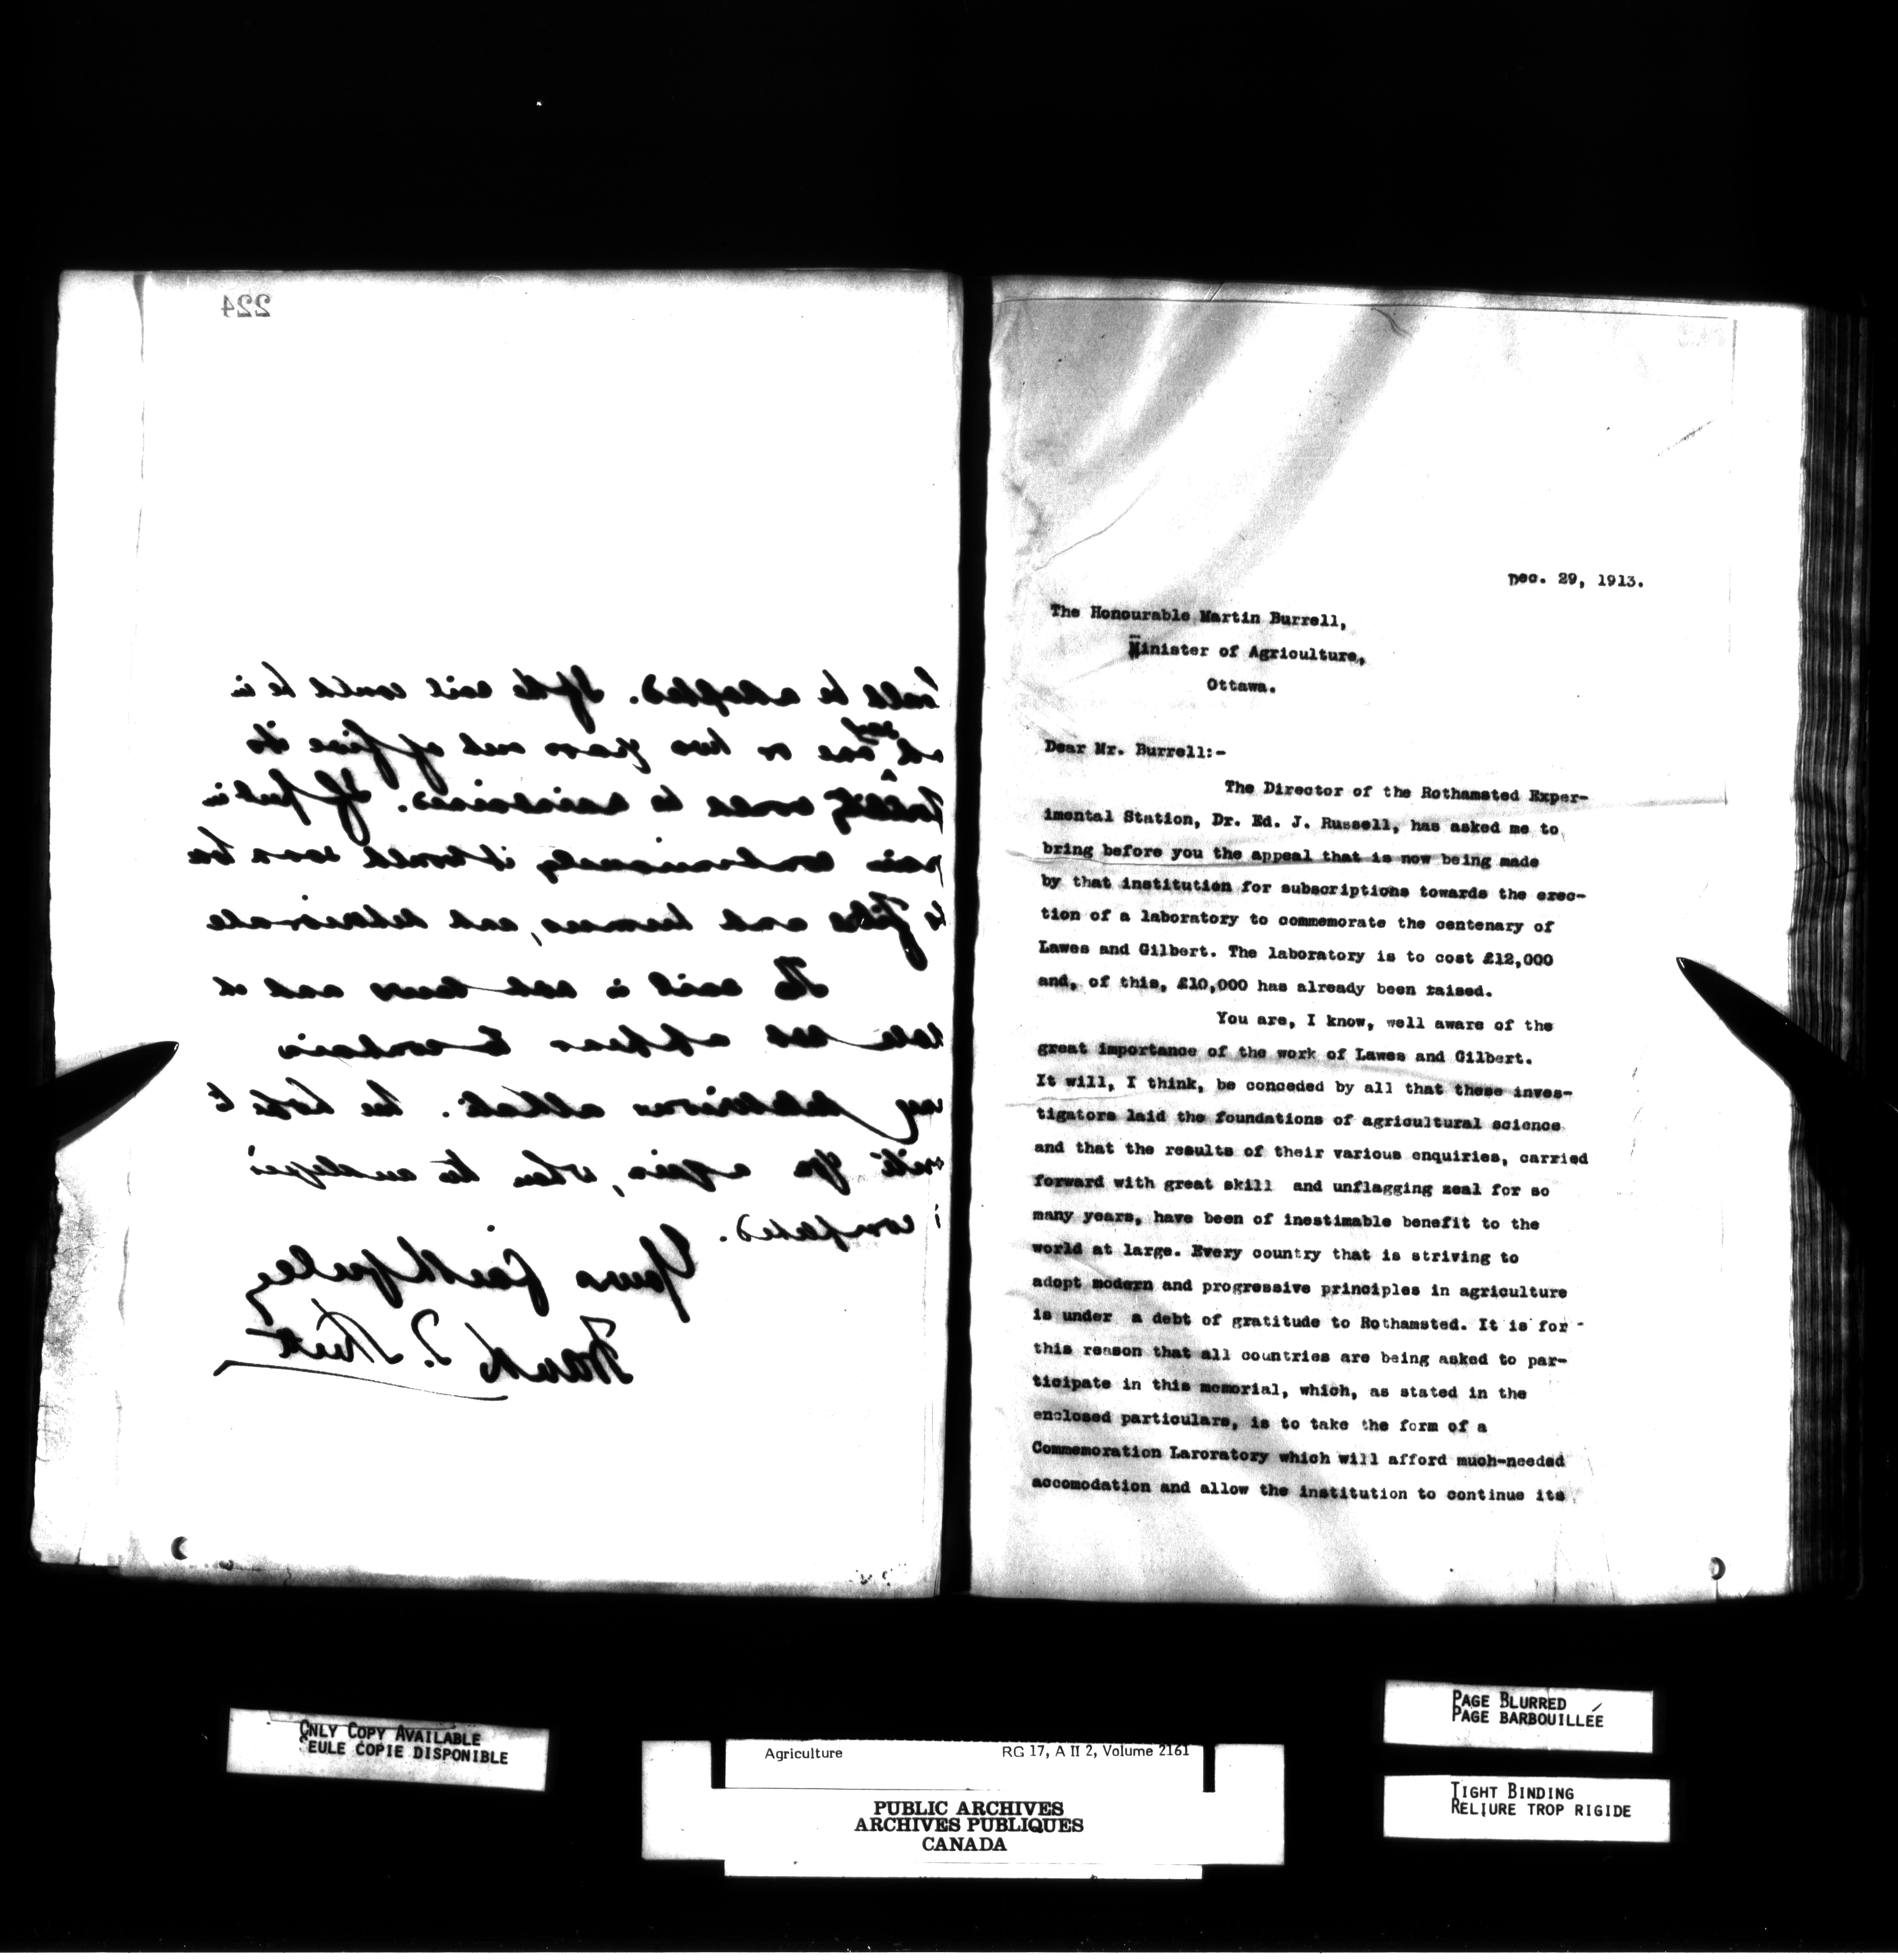 224
be adopted. If the soil could be in
say
one or two years out of five its
would be maintained. If put in
continuously it would soon be
fibre and humus, and deteriorate
The soil is not sour and
not appear to contain
any deleterious alkali. We hope to
you again, when the analysis
completed.
Yours faithfully
Frank T. Shutt
Dec. 29, 1913.
The Honourable Martin Burrell,
Minister of Agriculture,
Ottawa.
Dear Mr. Burrell:-
The Director of the Rothamsted Exper-
imental Station, Dr. Ed. J. Russell, has asked me to
bring before you the appeal that is now being made
by that institution for subscriptions towards the erec-
tion of a laboratory to commemorate the centenary of
Lawes and Gilbert. The laboratory is to cost £12,000
and, of this, £10,000 has already been raised.
You are, I know, well aware of the
great importance of the work of Lawes and Gilbert.
It will, I think, be conceded by all that these inves-
tigators laid the foundations of agricultural science
and that the results of their various enquiries, carried
forward with great skill and unflagging zeal for so
many years, have been of inestimable benefit to the
world at large. Every country that is striving to
adopt modern and progressive principles in agriculture
is under a debt of gratitude to Rothamsted. It is for -
this reason that all countries are being asked to par-
ticipate in this memorial, which, as stated in the
enclosed particulars, is to take the form of a
Commemoration Laroratory which will afford much-needed
accomodation and allow the institution to continue its
ONLY COPY AVAILABLE
SEULE COPIE DISPONIBLE
Agriculture RG 17, A II 2, Volume 2161
PUBLIC ARCHIVES
ARCHIVES PUBLIQUES
CANADA
PAGE BLURRED
PAGE BARBOUILLÉE
TIGHT BINDING
RELIURE TROP RIGIDE